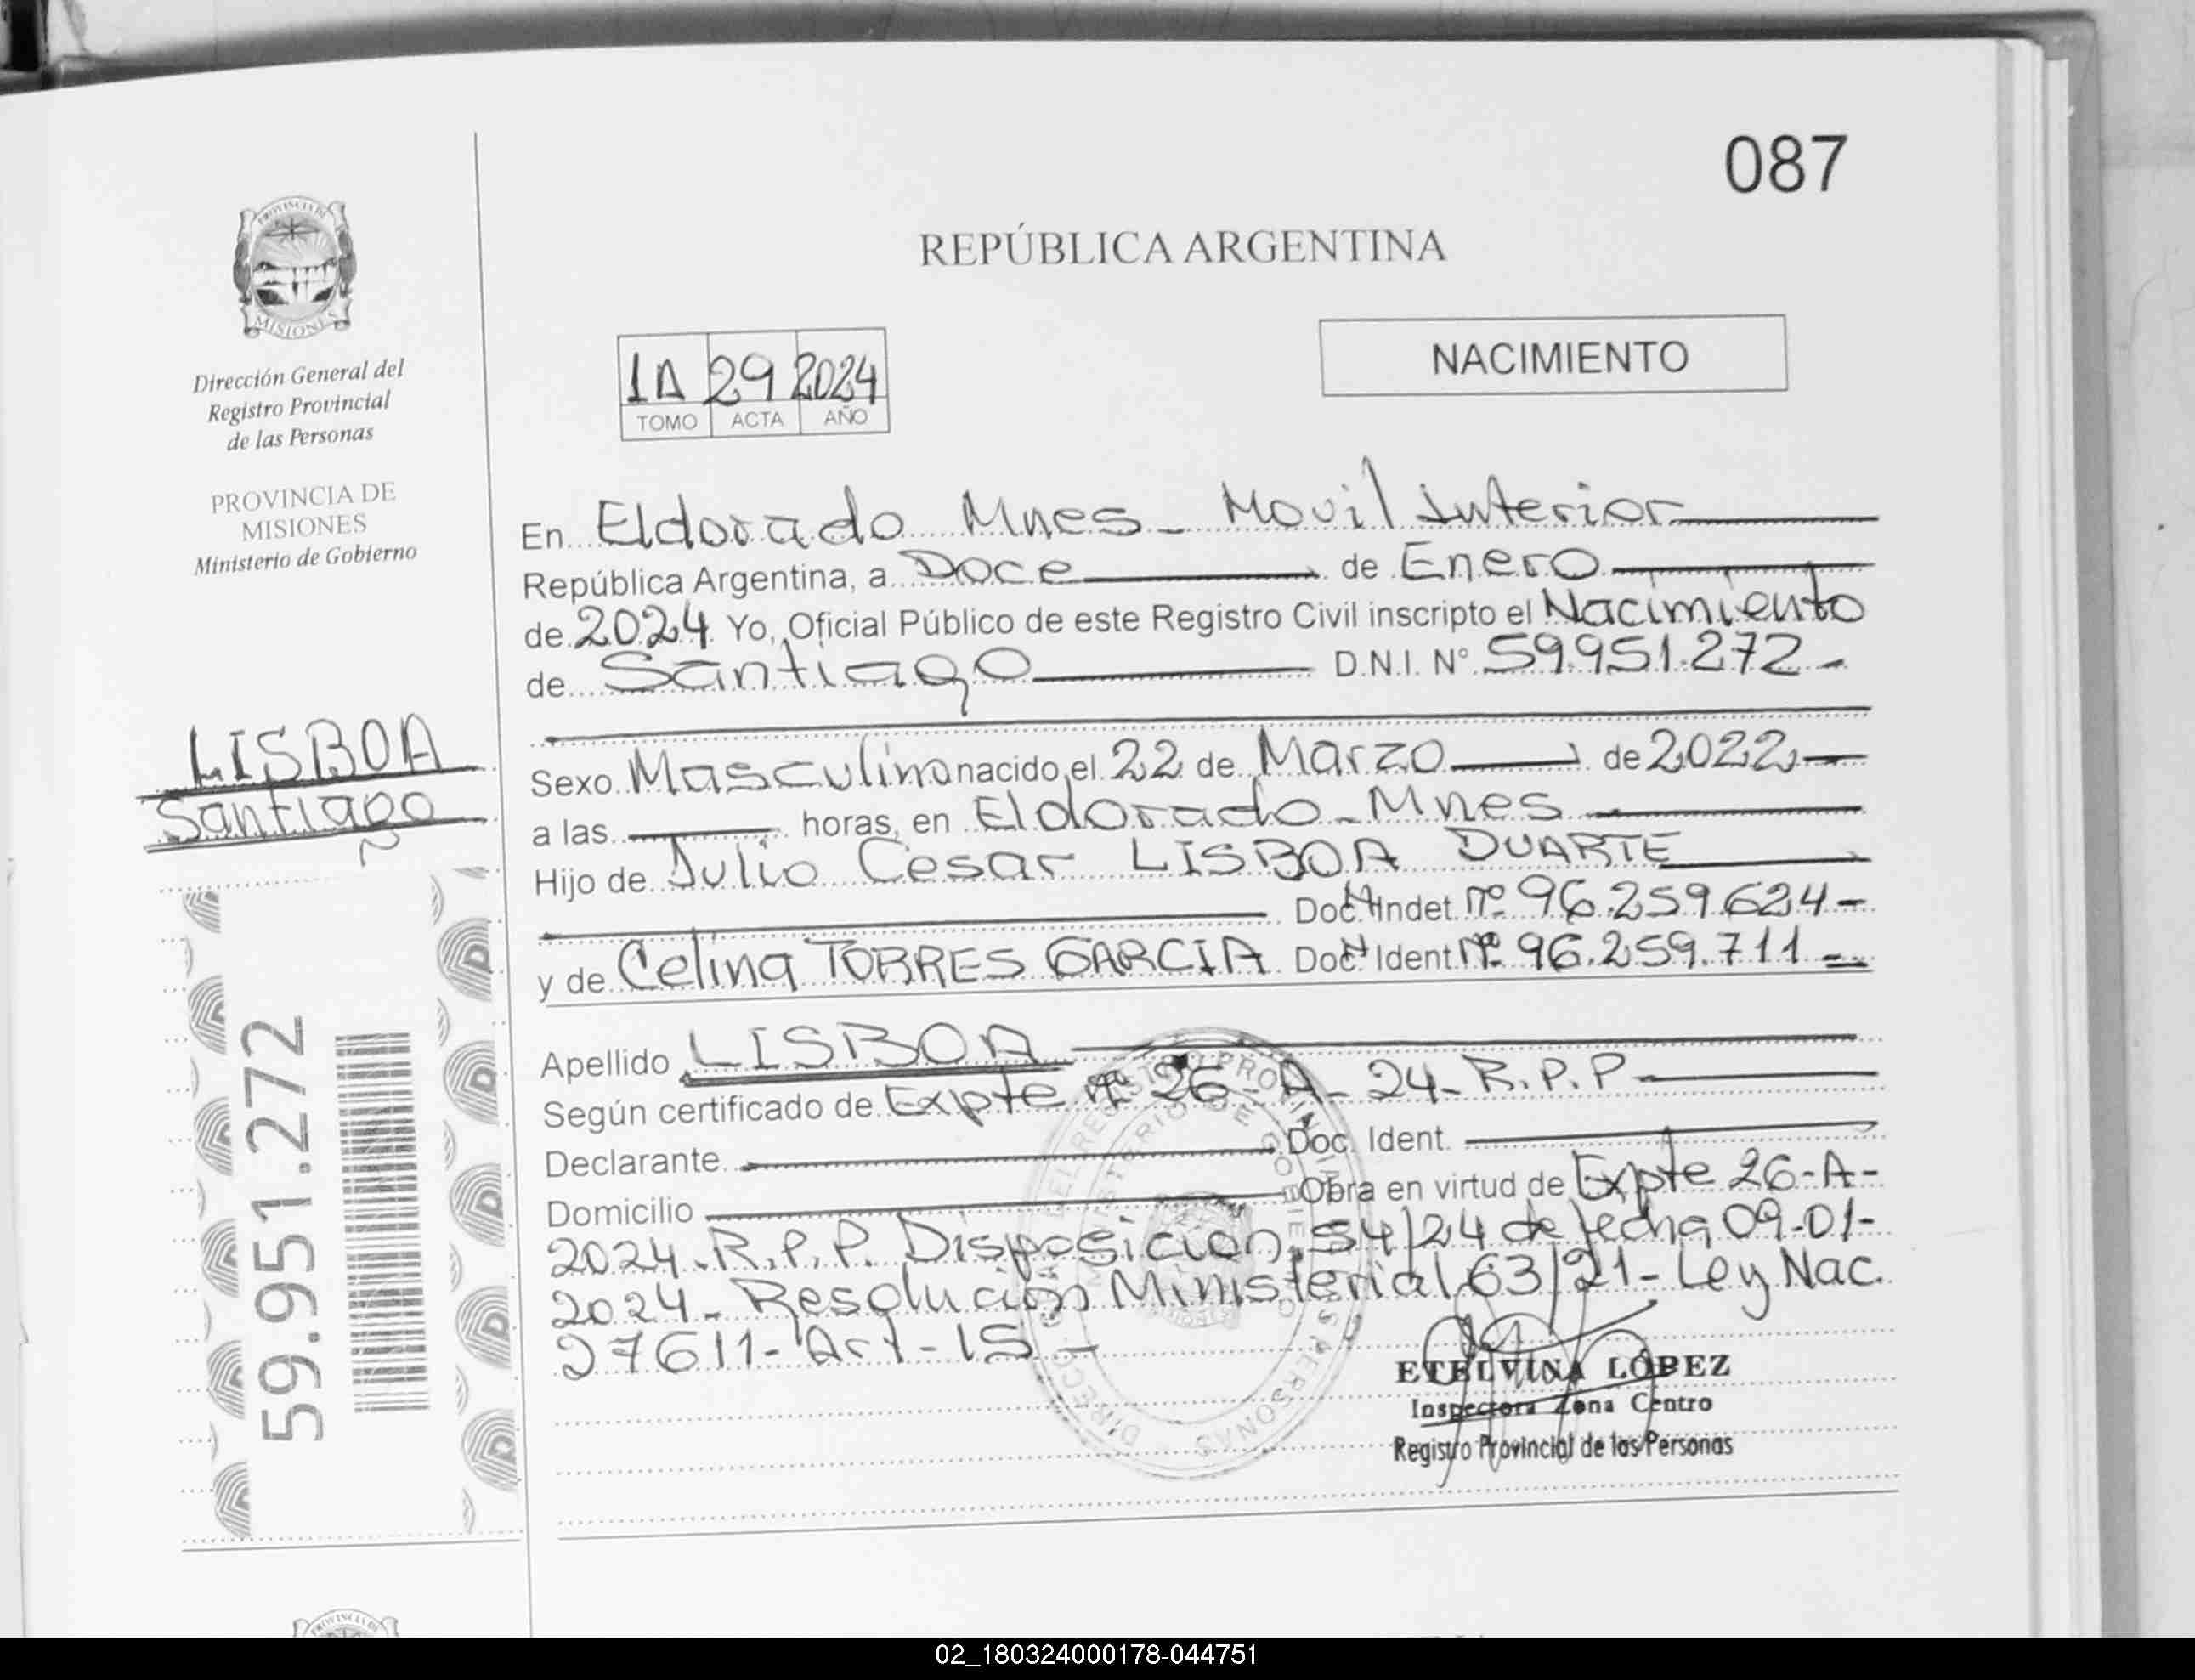 087
REPÚBLICA ARGENTINA
PROVINCIA DE
MISIONES
Dirección General del
Registro Provincial
de las Personas
PROVINCIA DE
MISIONES
Ministerio de Gobierno
LISBOA
Santiago
59.951.272
1A 29 2024
TOMO ACTA AÑO
NACIMIENTO
En Eldorado Mnes - Movil Interior
República Argentina, a Doce de Enero
de 2024 Yo, Oficial Público de este Registro Civil inscripto el Nacimiento
de Santiago D.N.I. N° 59.951.272 -
Sexo Masculino nacido el 22 de Marzo de 2022
a las horas, en Eldorado - Mnes
Hijo de Julio Cesar LISBOA DUARTE
Doc. Indet. Nº 96.259.624 -
y de Celina TORRES GARCIA Doc. Ident. Nº 96.259.711 -
Apellido LISBOA
Según certificado de Expte Nº 26 - A - 24 - R.P.P
Declarante Doc. Ident.
Domicilio Obra en virtud de Expte 26-A-
2024 - R.P.P. Disposicion 54/24 de fecha 09-01-
2024 - Resolución Ministerial 63/21 - Ley Nac.
27611 - Art - 15 -
ETELVINA LÓPEZ
Inspectora Zona Centro
Registro Provincial de las Personas
02_180324000178-044751